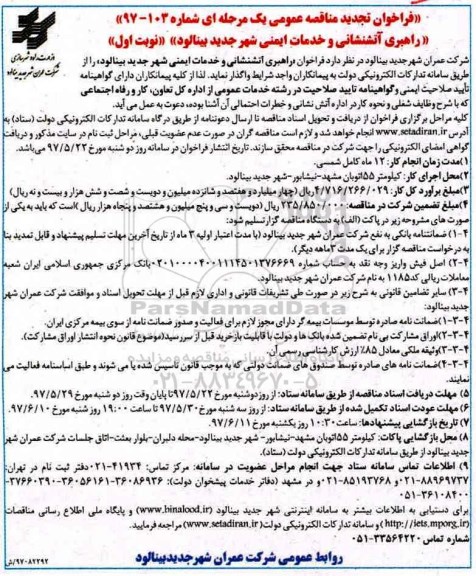 «فراخوان تجدید مناقصه عمومی یک مرحله ای شماره ۱۰۳-۹۷»
«راهبری آتشنشانی و خدمات ایمنی شهر جدید بینالود» «نوبت اول»
وزارت راه و شهرسازی
شرکت عمران شهر جدید بینالود
شرکت عمران شهر جدید بینالود در نظر دارد فراخوان «راهبری آتشنشانی و خدمات ایمنی شهر جدید بینالود» را از
طریق سامانه تدارکات الکترونیکی دولت به پیمانکاران واجد شرایط واگذار نماید. لذا از کلیه پیمانکاران دارای گواهینامه
تأیید صلاحیت ایمنی و گواهینامه تایید صلاحیت در رشته خدمات عمومی از اداره کل تعاون، کار و رفاه اجتماعی
که با شرح وظایف شغلی و نحوه کار در اداره آتش نشانی و خطرات احتمالی آن آشنا بوده، دعوت به عمل می آید.
کلیه مراحل برگزاری فراخوان از دریافت و تحویل اسناد مناقصه تا ارسال دعوتنامه از طریق درگاه سامانه تدارکات الکترونیکی دولت (ستاد) به
آدرس www.setadiran.ir انجام خواهد شد و لازم است مناقصه گران در صورت عدم عضویت قبلی، مراحل ثبت نام در سایت مذکور و دریافت
گواهی امضای الکترونیکی را جهت شرکت در مناقصه محقق سازند. تاریخ انتشار فراخوان در سامانه روز دو شنبه مورخ ۹۷/۵/۲۲ می‌باشد.
۱)مدت زمان انجام کار: ۱۲ ماه کامل شمسی.
۲)محل اجرای کار: کیلومتر ۵۵اتوبان مشهد-نیشابور-شهر جدید بینالود.
۳)مبلغ برآورد کل کار: ۴/۷۱۶/۲۶۶/۰۲۹ریال (چهار میلیارد و هفتصد و شانزده میلیون و دویست و شصت و شش هزار و بیست و نه ریال)
۴)مبلغ تضمین شرکت در مناقصه: ۲۳۵/۸۵۰/۰۰۰ ریال (دویست و سی و پنج میلیون و هشتصد و پنجاه هزار ریال) است که باید به یکی از
صورت های مشروحه زیر در پاکت (الف) به دستگاه مناقصه گزار تسلیم شود:
۴-۱) ضمانتنامه بانکی به نفع شرکت عمران شهر جدید بینالود (با مدت اعتبار اولیه ۳ ماه از تاریخ آخرین مهلت تسلیم پیشنهاد و قابل تمدید بنا
به درخواست مناقصه گزار برای یک مدت ۳ماهه دیگر).
۴-۲) اصل فیش واریز وجه نقد به حساب شماره ۰۲۰۱۰۰۰۰۴۰۰۱۱۱۴۵۰۱۳۷۶۶۶۹ بانک مرکزی جمهوری اسلامی ایران شعبه
معاملات ریالی کد۱۱۸۵ به نام شرکت عمران شهر جدید بینالود.
۴-۳) سایر تضامین قانونی به شرح زیر در صورت طی تشریفات قانونی و اداری لازم قبل از مهلت تحویل اسناد و موافقت شرکت عمران شهر
جدید بینالود:
۴-۳-۱)ضمانت نامه صادره توسط موسسات بیمه گر دارای مجوز لازم برای فعالیت و صدور ضمانت نامه از سوی بیمه مرکزی ایران.
۴-۳-۲)اوراق مشارکت بی نام تضمین شده بانک ها و دولت با قابلیت بازخرید قبل از سررسید(موضوع قانون نحوه انتشار اوراق مشارکت).
۴-۳-۳)وثیقه ملکی معادل ۸۵٪ ارزش کارشناسی رسمی آن.
۴-۳-۴)ضمانت نامه های صادره توسط صندوق های ضمانت دولتی که به موجب قانون تاسیس شده یا می شوند و طبق اساسنامه فعالیت می
نمایند.
۵) مهلت دریافت اسناد مناقصه از طریق سامانه ستاد: از روزدوشنبه مورخ ۹۷/۵/۲۲ تا پایان وقت روز دو شنبه مورخ ۹۷/۵/۲۹.
۶) مهلت عودت اسناد تکمیل شده از طریق سامانه ستاد: از روز سه شنبه مورخ ۹۷/۵/۳۰ تا ساعت ۱۹:۰۰ روز شنبه مورخ ۹۷/۶/۱۰.
۷) تاریخ بازگشایی پیشنهادها: ساعت ۱۰:۳۰ روز یکشنبه مورخ ۹۷/۶/۱۱.
۸) محل بازگشایی پاکات: کیلومتر ۵۵اتوبان مشهد-نیشابور- شهر جدید بینالود-محله دلبران-بلوار بعثت-اتاق جلسات شرکت عمران شهر
جدید بینالود از طریق سامانه تدارکات الکترونیکی دولت (ستاد).
۹) اطلاعات تماس سامانه ستاد جهت انجام مراحل عضویت در سامانه: مرکز تماس: ۴۱۹۳۴-۰۲۱دفتر ثبت نام در تهران:
۸۸۹۶۹۷۳۷-۰۲۱و ۸۵۱۹۳۷۶۸-۰۲۱ و در مشهد (دفاتر خدمات پیشخوان دولت): ۳۶۰۸۶۹۳۶-۳۶۰۵۶۱۶۱-۳۷۶۶۰۳۹۰-
۳۶۱۰۸۴۰۰-۰۵۱
برای دستیابی به اطلاعات بیشتر به سامانه اینترنتی شهر جدید بینالود (www.binalood.ir) و پایگاه ملی اطلاع رسانی مناقصات
(http://iets.mporg.ir) و سامانه تدارکات الکترونیکی دولت(www.setadiran.ir) مراجعه فرمایید.
شماره تماس: ۳۳۵۶۴۲۲۰-۰۵۱
روابط عمومی شرکت عمران شهر جدید بینالود
۹۷۰۸۲۲۹۲/ش
ParsNamadData
پایگاه اطلاع رسانی مناقصه و مزایده
۰۲۱-۸۸۳۴۹۶۷۰-۵